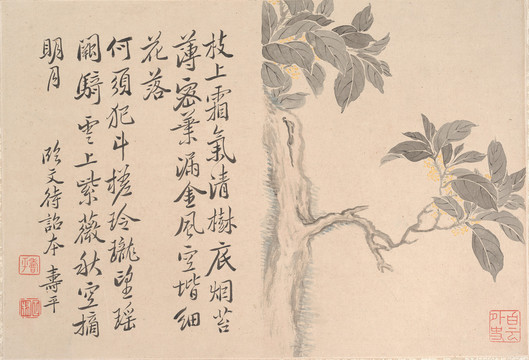 枝上霜氣清樹底烟苔
薄密葉漏金風空堦細
花落
何須犯斗槎玲瓏望瑤
闕騎雲上紫薇秋空摘
明月
臨文待詔本 壽平
白云
外史